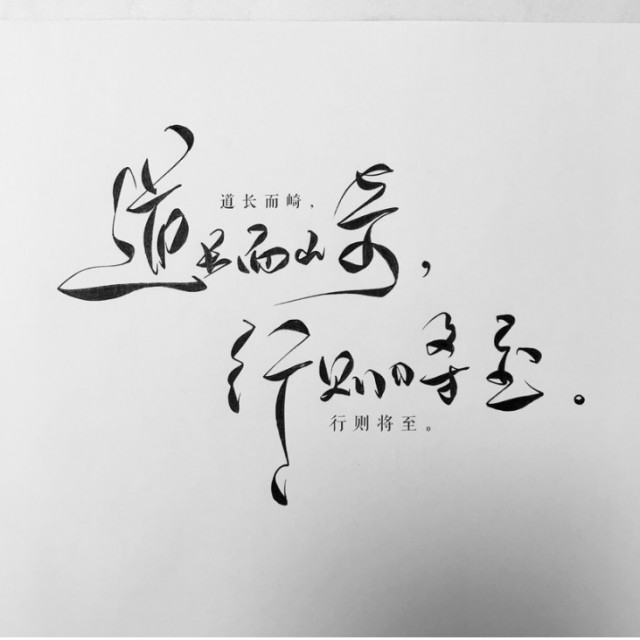 道长而崎,
道长而崎,
行则将至。
行则将至。